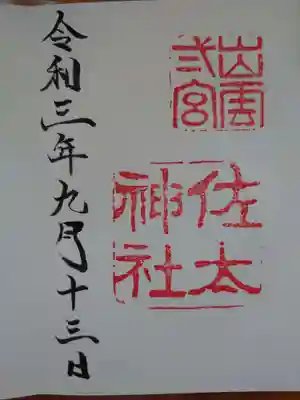 出雲
弍宮
佐太
神社
令和三年九月十三日